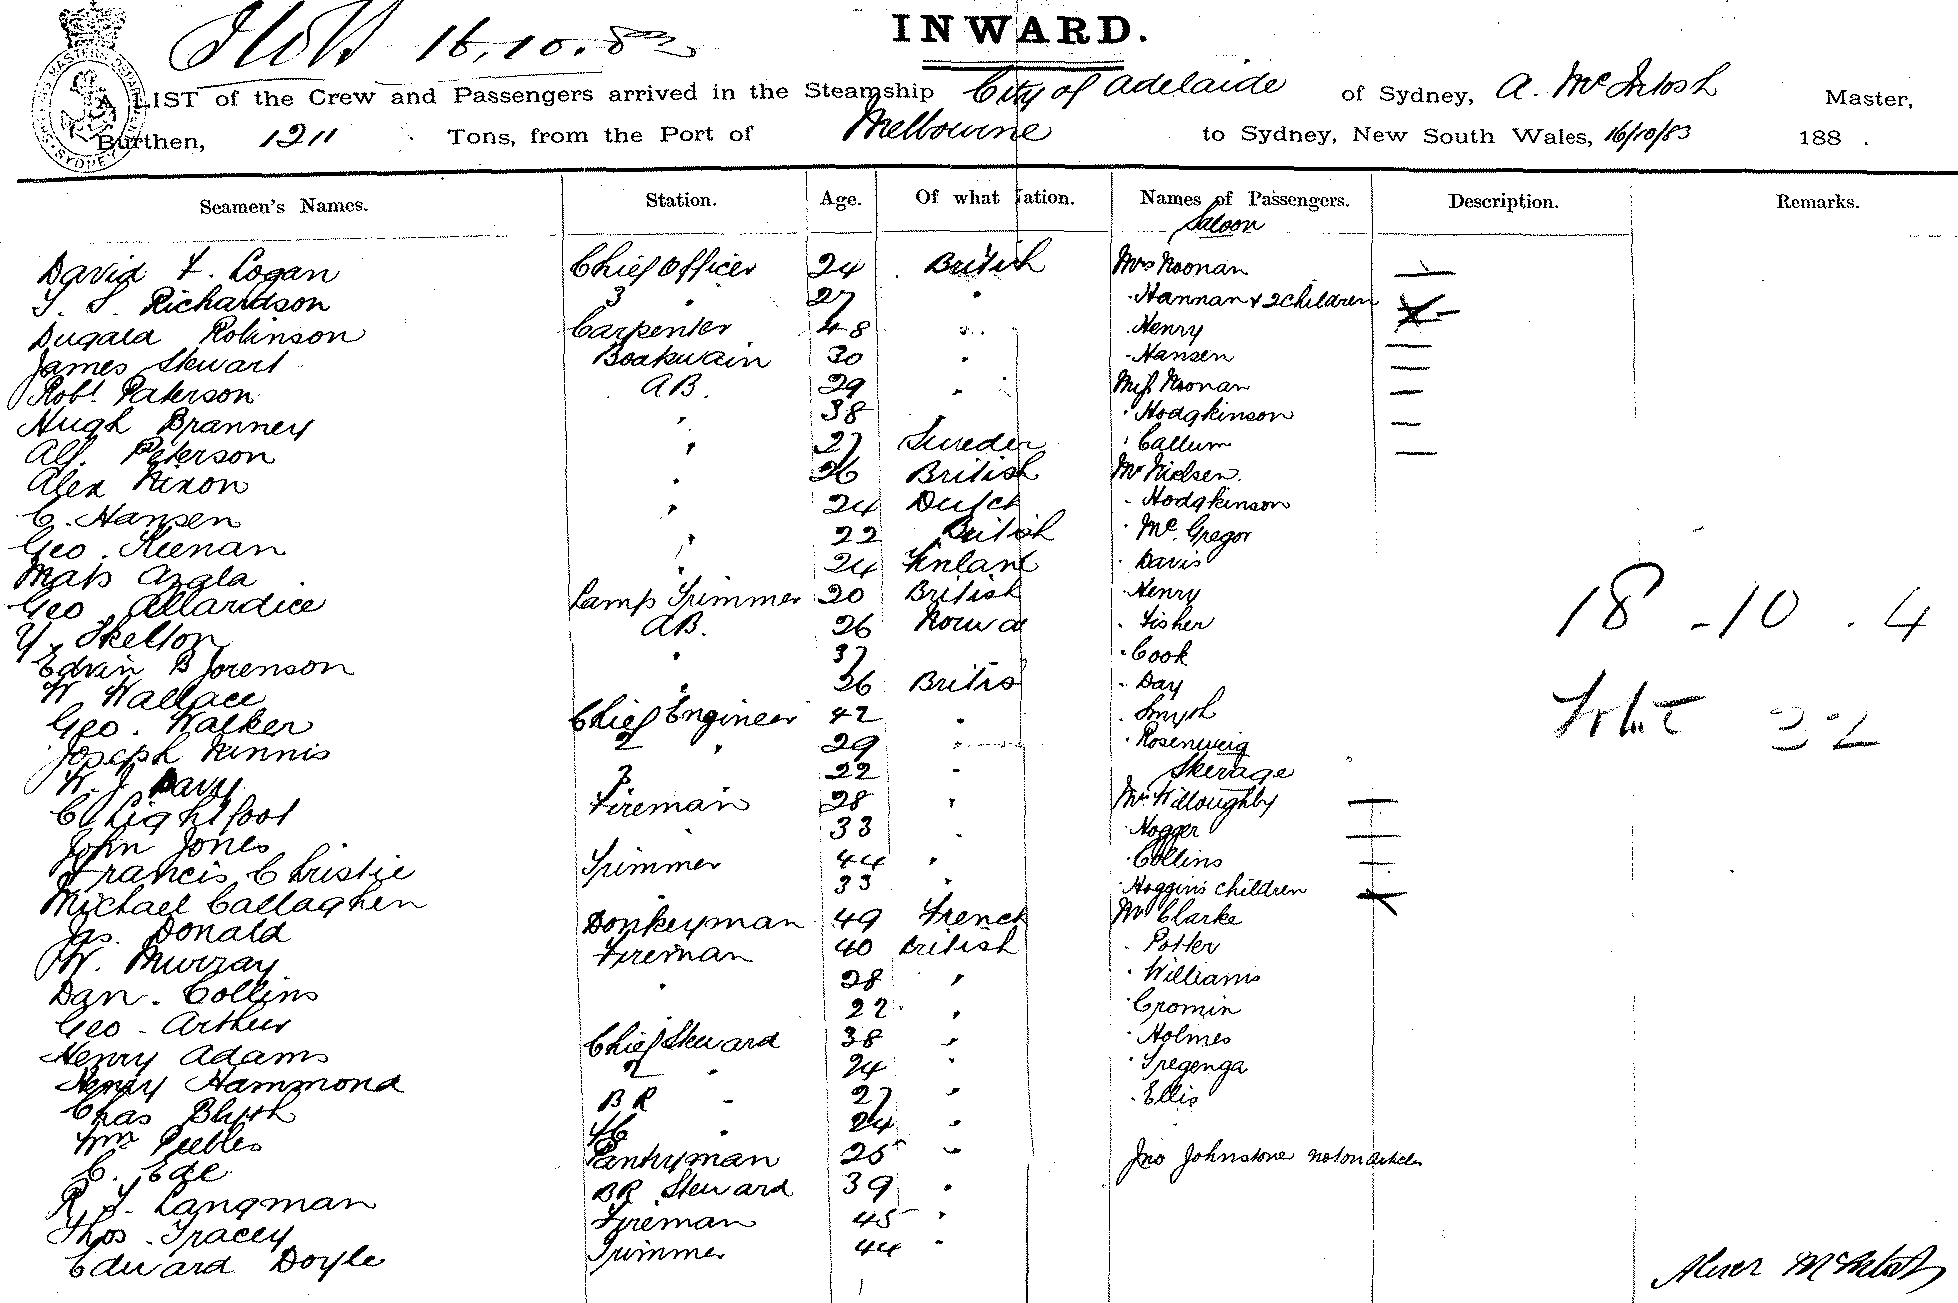 16.10.83
INWARD.
A LIST of the Crew and Passengers arrived in the Steamship City of Adelaide of Sydney, A. McIntosh Master,
Burthen, 1211 Tons, from the Port of Melbourne to Sydney, New South Wales, 16/10/83 188 .
Seamen's Names. Station. Age. Of what Nation. Names of Passengers. Description. Remarks.
Saloon
David F. Logan Chief Officer 24 British Mrs Noonan
T. S. Richardson 3 " 27 " " Hannan & 2 children
Dugald Robinson Carpenter 48 " " Henry
James Stewart Boatswain 30 " " Hansen
Robt Paterson AB. 29 " Miss Noonan
Hugh Branney " 38 " Hodgkinson
Alf. Peterson " 27 Sweden " Callum
Alex Nixon " 26 British Mr Nielsen.
C. Hansen " 24 Dutch " Hodgkinson
Geo. Keenan " 22 British " McGregor
Mats " 24 Finland " Davis
Geo Allardice Lamp Trimmer 20 British " Henry
Skelton AB. 26 Norwa " Fisher
Edvin B Jorenson " 37 " Cook
W Wallace " 26 Britis " Day
Geo. Walker Chief Engineer 42 " " Smyth
Joseph Ninnis 2 " 29 " " Rosenweig
W. J. Davy 3 22 " Steerage
C. Lightfoot Fireman 28 " Mrs Willoughby
John Jones 33 " " Hogger
Francis Christie Trimmer 44 " " Collins
Michael Callaghen " 33 " " Hoggins children
Jas. Donald Donkeyman 49 French Mr Clarke
W. Murray Fireman 40 British " Potter
Dan. Collins " 28 " " Williams
Geo. Arthur 22 " " Cromin
Henry Adams Chief Steward 38 " " Holmes
Henry Hammond 2 " 24 " " Tregenga
Chas Blyth BR " 27 " " Ellis
Wm Peebles " 24 "
C. Ede Pantryman 25 " Jno Johnstone not on articles
R. T. Langman BR Steward 39 "
Thos. Tracey Fireman 45 "
Edward Doyle Trimmer 44 "
18 - 10 . 4
32
Alexr McIntosh